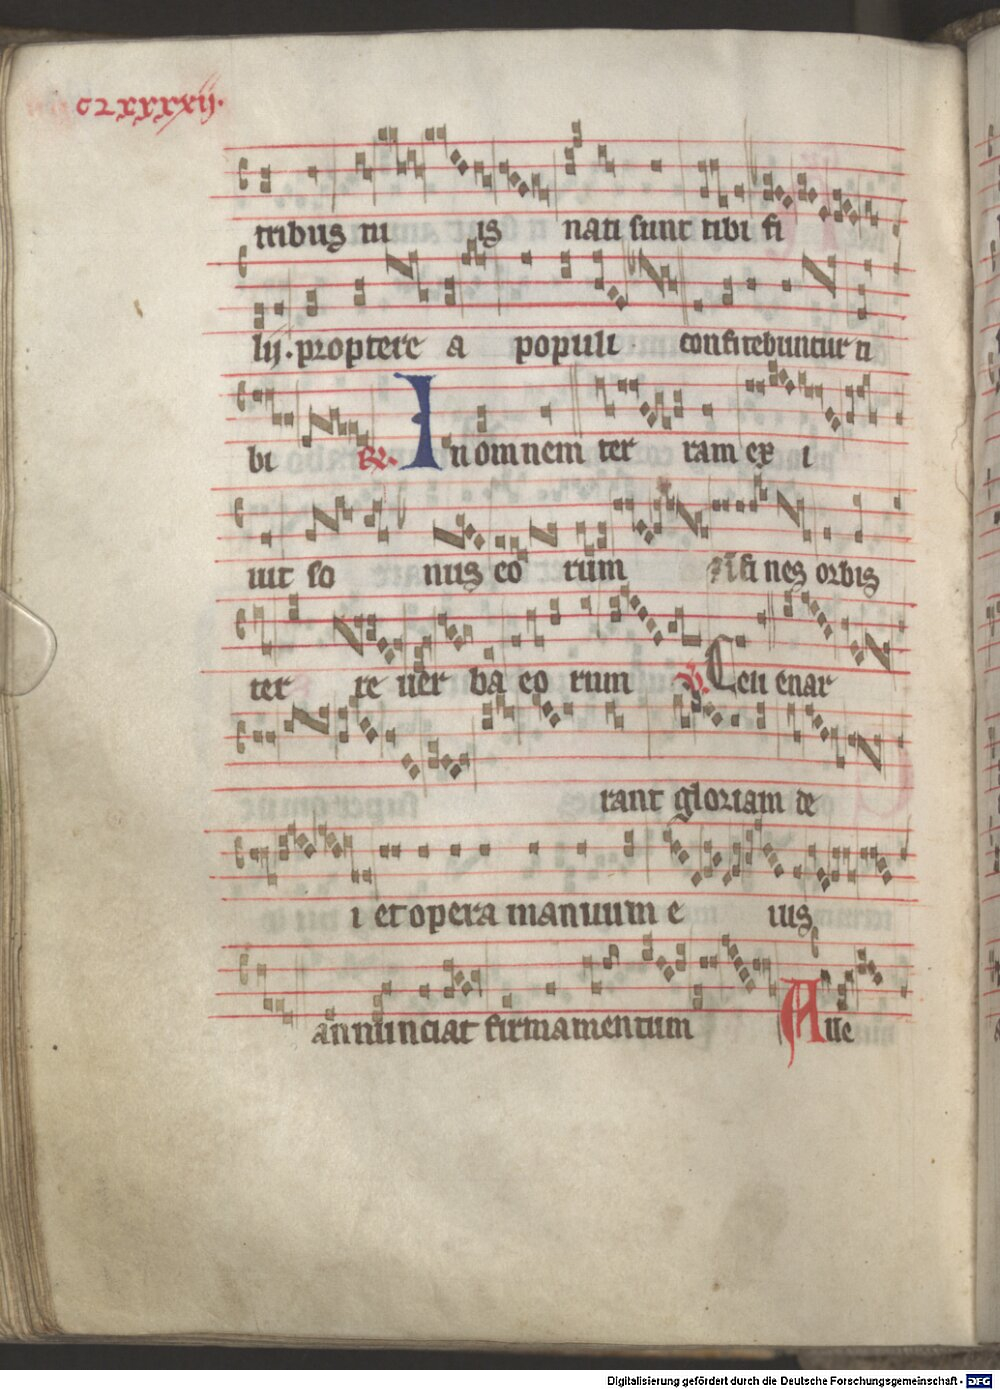 CLXXXXII.
tribus tu is nati sunt tibi fi
lij. proptere a populi confitebuntur ti
bi R. In omnem ter ram ex i
uit so nus eo rum fi nes orbis
ter re uer ba eo rum V. Celi enar
rant gloriam de
i et opera manuum e ius
annunciat firmamentum Aue
Digitalisierung gefördert durch die Deutsche Forschungsgemeinschaft - DFG